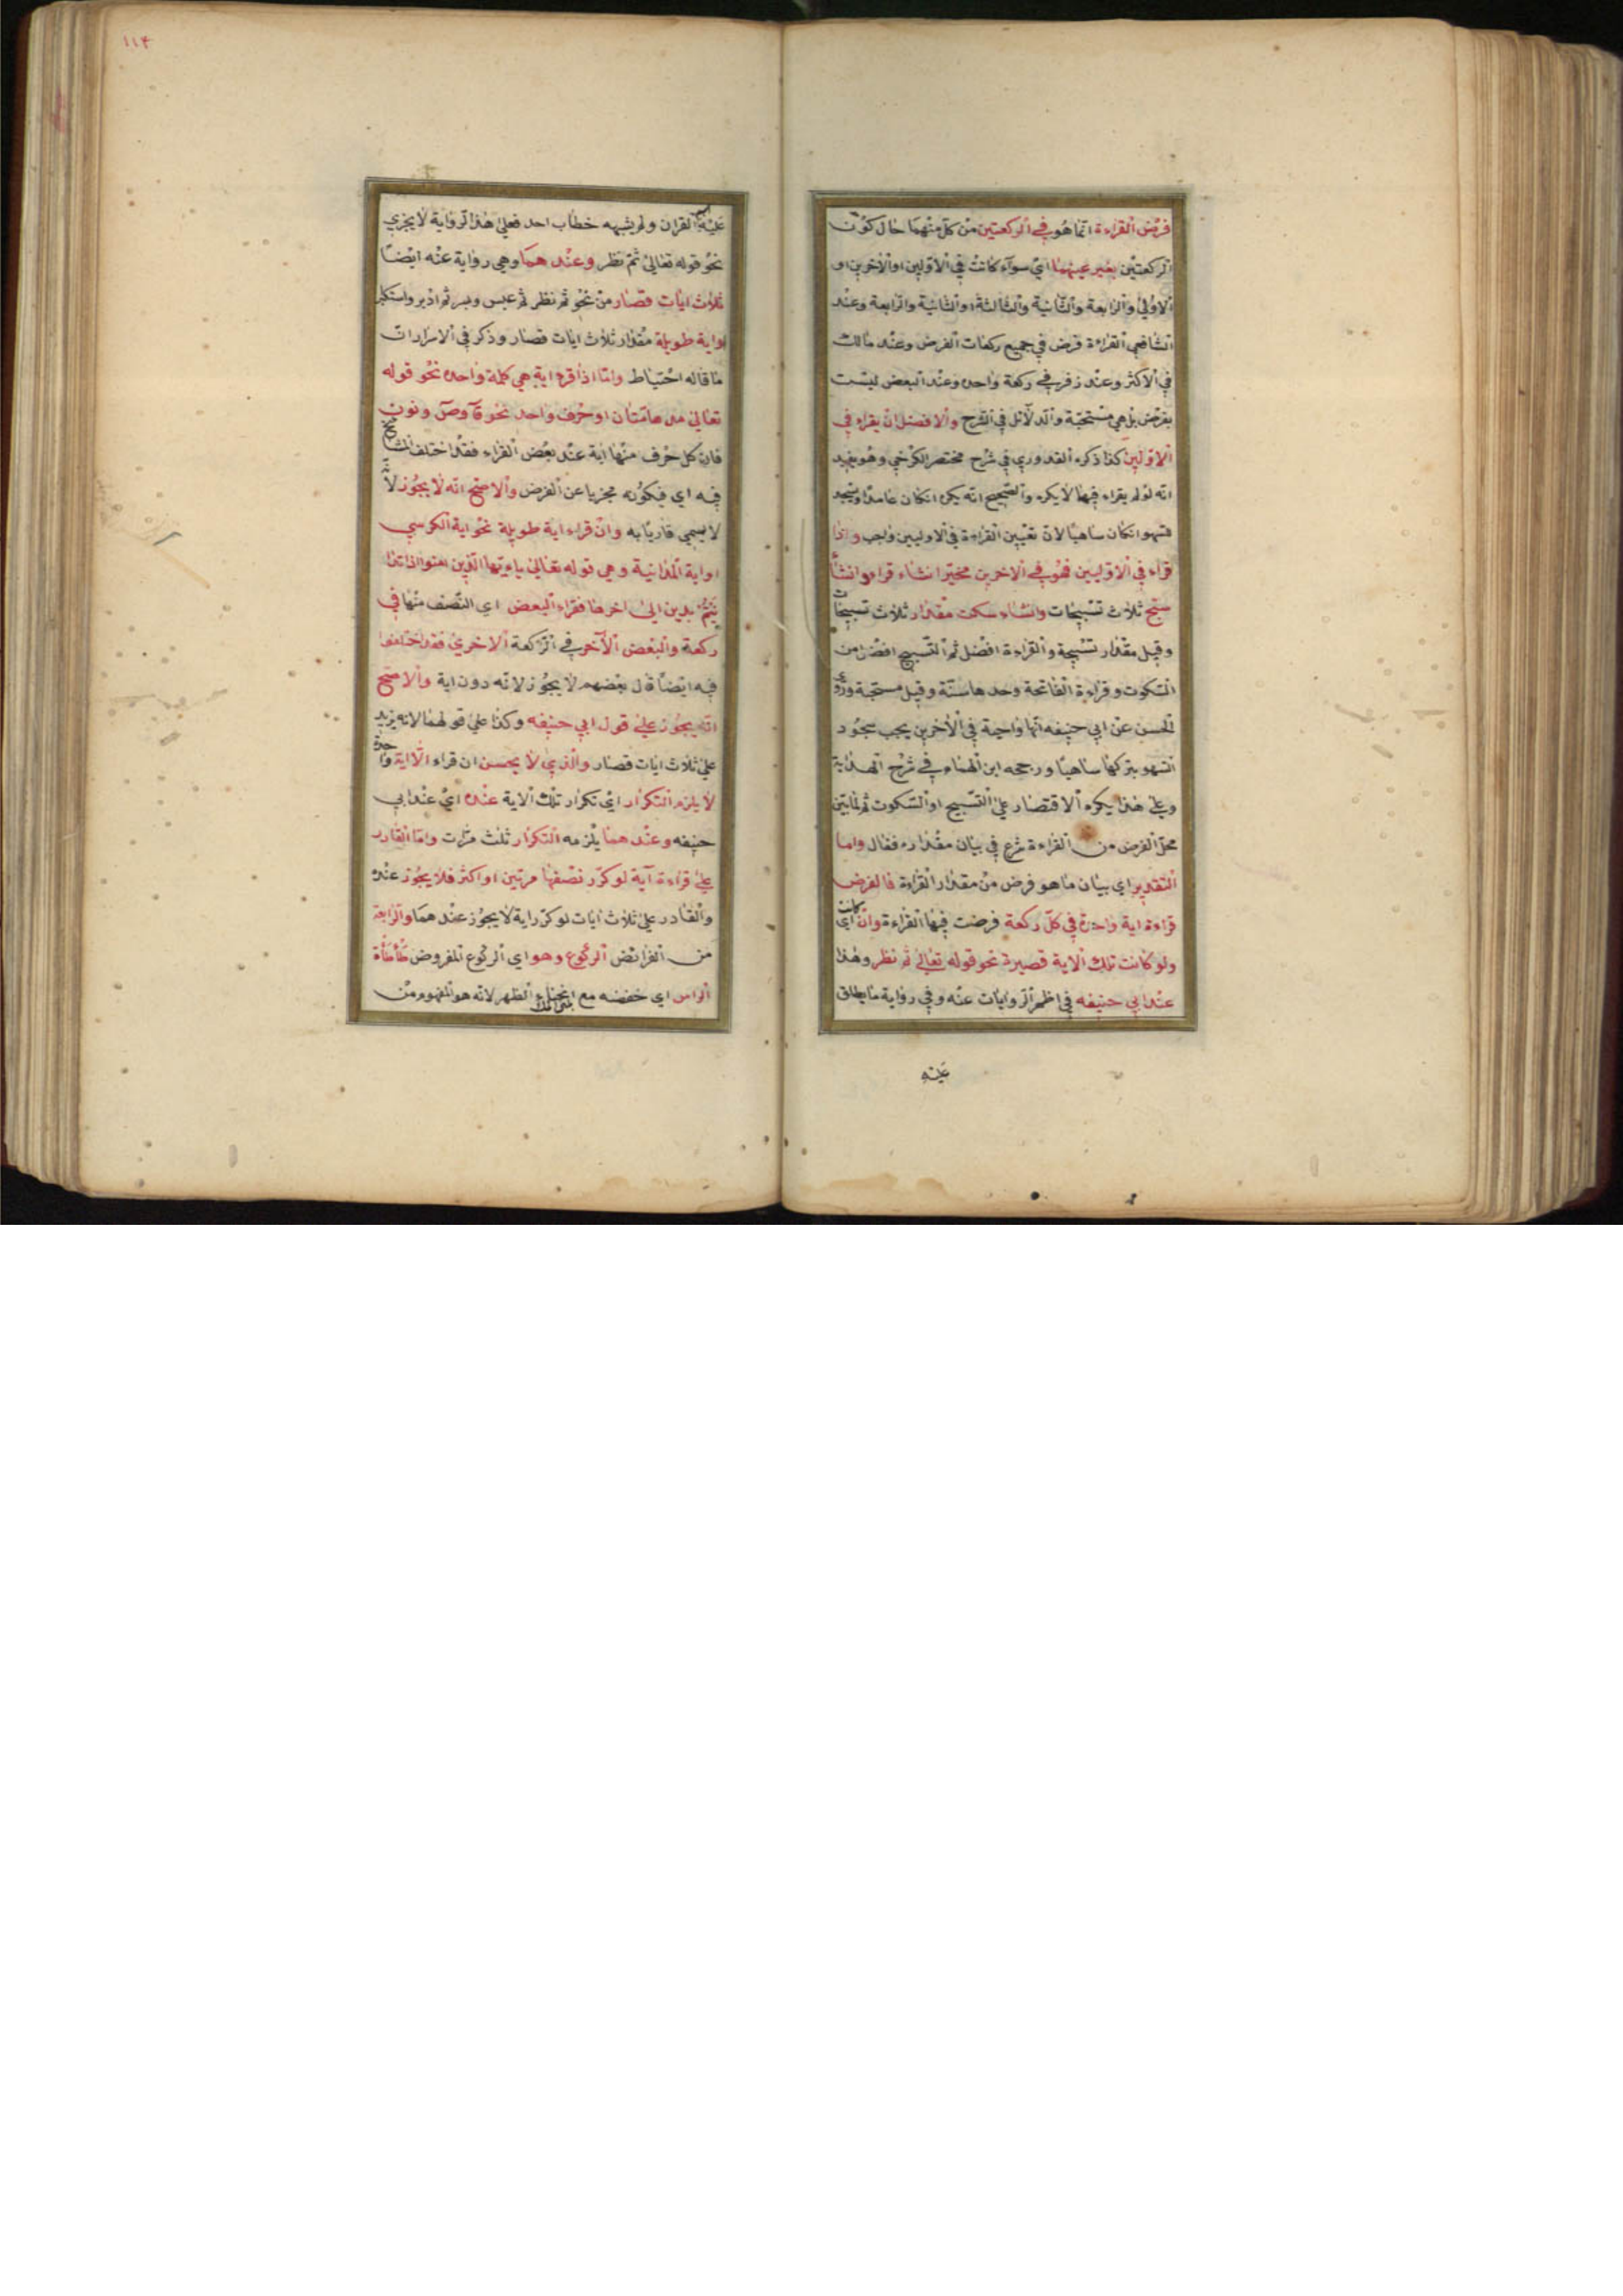 فرض القراءة انما هو في الركعتين من كل منهما حال كون
الركعتين بغير عينهما اي سواء كانت في الاوليين او الاخريين او
الاولى والرابعة والثانية والثالثة او الثانية والرابعة وعند
الشافعي القراءة فرض في جميع ركعات الفرض وعند مالك
في الاكثر وعند زفر في ركعة واحده وعند البعض ليست
بفرض بل هي مستحبة والدلائل في الشرح والافضل ان يقراء في
الاوليين كذا ذكره القدوري في شرح مختصر الكرخي وهو يفيد
انه لو لم يقراء فيها لا يكره والصحيح انه يكره انكان عامدا ويسجد
للسهو انكان ساهيا لان تعيين القراءة في الاوليين واجب واذا
قراء في الاوليين فهو في الاخريين مخير انشاء قراء وانشاء
سبح ثلاث تسبيحات وانشاء سكت مقدار ثلاث تسبيحات
وقيل مقدار تسبيحة والقراءة افضل ثم التسبيح افضل من
السكوت وقراءة الفاتحة وحدها سنة وقيل مستحبة وروى
الحسن عن ابي حنيفه انها واجبة في الاخريين يجب سجود
السهو بتركها ساهيا ورجحه ابن الهمام في شرح الهداية
وعلى هذا يكره الاقتصار على التسبيح او السكوت ثم لما بين
محل الفرض من القراءة شرع في بيان مقداره فقال واما
التقدير اي بيان ما هو فرض من مقدار القراءة فالفرض
قراءة اية واحدة في كل ركعة فرضت فيها القراءة وان كانت اي
ولو كانت تلك الاية قصيرة نحو قوله تعالى ثم نظر وهذا
عند ابي حنيفه في اظهر الروايات عنه وفي رواية ما يطلق
عليه
١١٤
عليه اسم القران ولم يشبهه خطاب احد فعلى هذا الرواية لا يجزي
نحو قوله تعالى ثم نظر وعندهما وهي رواية عنه ايضا
ثلاث ايات قصار من نحو ثم نظر ثم عبس وبسر ثم ادبر واستكبر
او اية طويلة مقدار ثلاث ايات قصار وذكر في الاسرار ان
ما قاله احتياط واما اذا قرء اية هي كلمة واحده نحو قوله
تعالى مدهامتان او حرف واحد نحو ق وص ونون
فان كل حرف منها اية عند بعض القراء فقد اختلف
فيه اي في كونه مجزيا عن الفرض والاصح انه لا يجوز لانه
لا يسمي قاريا به وان قراء اية طويلة نحو اية الكرسي
او اية المداينة وهي قوله تعالى ياءيها الذين امنوا اذا تدا
ينتم بدين الى اخرها فقراء البعض اي النصف منها في
ركعة والبعض الآخر في الركعة الاخرى فقد اختلفوا
فيه ايضا قال بعضهم لا يجوز لانه دون اية والاصح
انه يجوز على قول ابي حنيفه وكذا على قولهما لانه يزيد
على ثلاث ايات قصار والذي لا يحسن ان قراء الا اية واحدة
لا يلزم التكرار اي تكرار تلك الاية عنده اي عند ابي
حنيفه وعندهما يلزمه التكرار ثلث مرات واما القادر
على قراءة آية لو كرر نصفها مرتين او اكثر فلا يجوز عنده
والقادر على ثلاث ايات لو كرر اية لا يجوز عندهما والرابعة
من الفرائض الركوع وهو اي الركوع المفروض طأطأة
الراس اي خفضه مع انحناء الظهر لانه هو المفهوم من